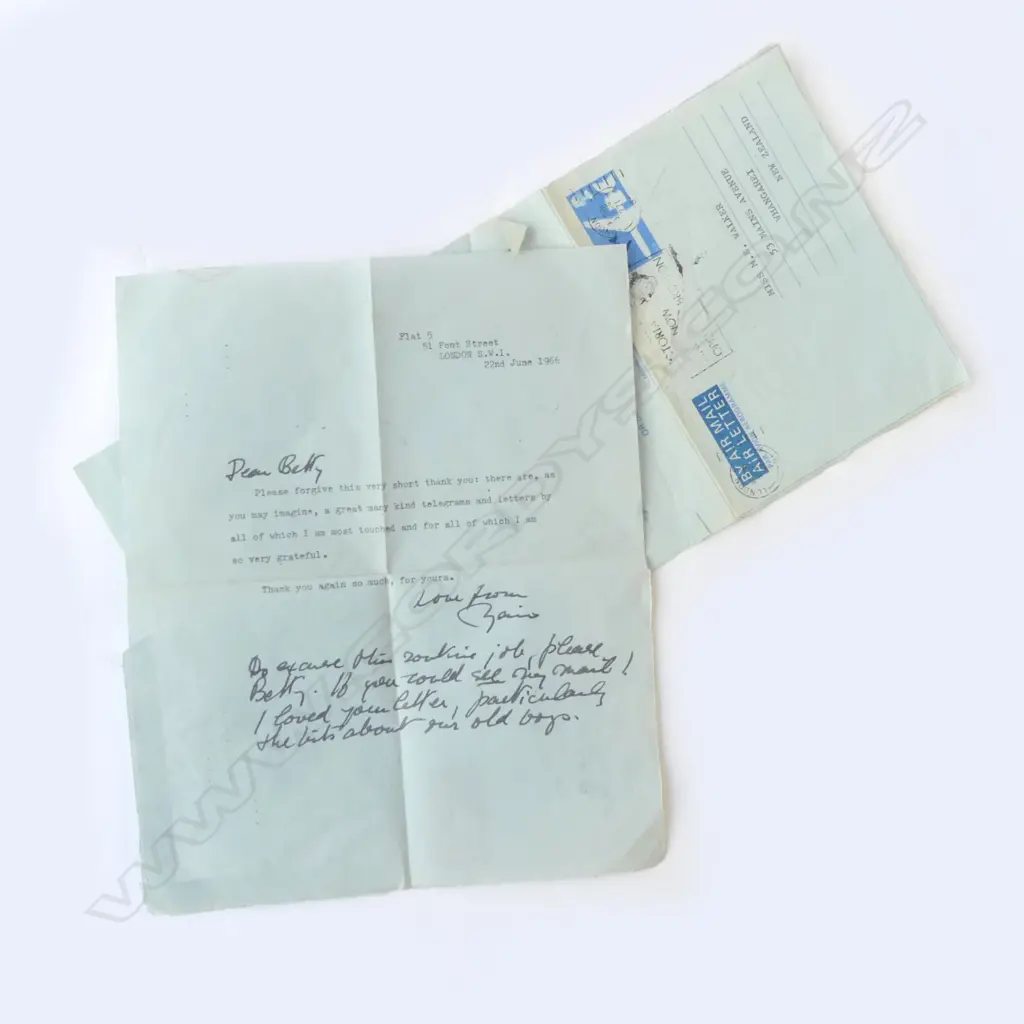 Flat 5
51 Pont Street
LONDON S.W.1.
22nd June 1966
Dear Betty
Please forgive this very short thank you: there are, as
you may imagine, a great many kind telegrams and letters by
all of which I am most touched and for all of which I am
so very grateful.
Thank you again so much, for yours.
Love from
Ngaio
Do excuse this routine job, please,
Betty. If you could see my mail!
I loved your letter, particularly
the bits about our old boys.
MISS M.E. WALKER
53 MAINS AVENUE
WHANGAREI
NEW ZEALAND
BY AIR MAIL
AIR LETTER
WWW.CORDYS.CO.NZ